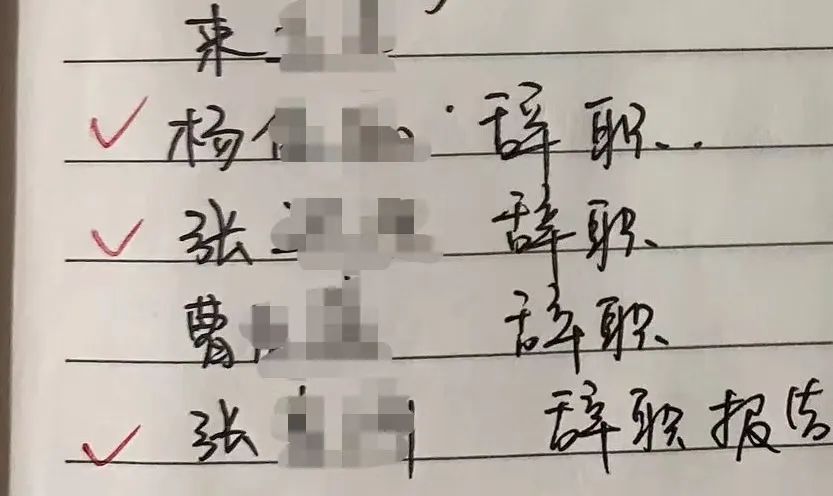 来
杨 辞职..
张 辞职、
曹 辞职、
张 辞职报告